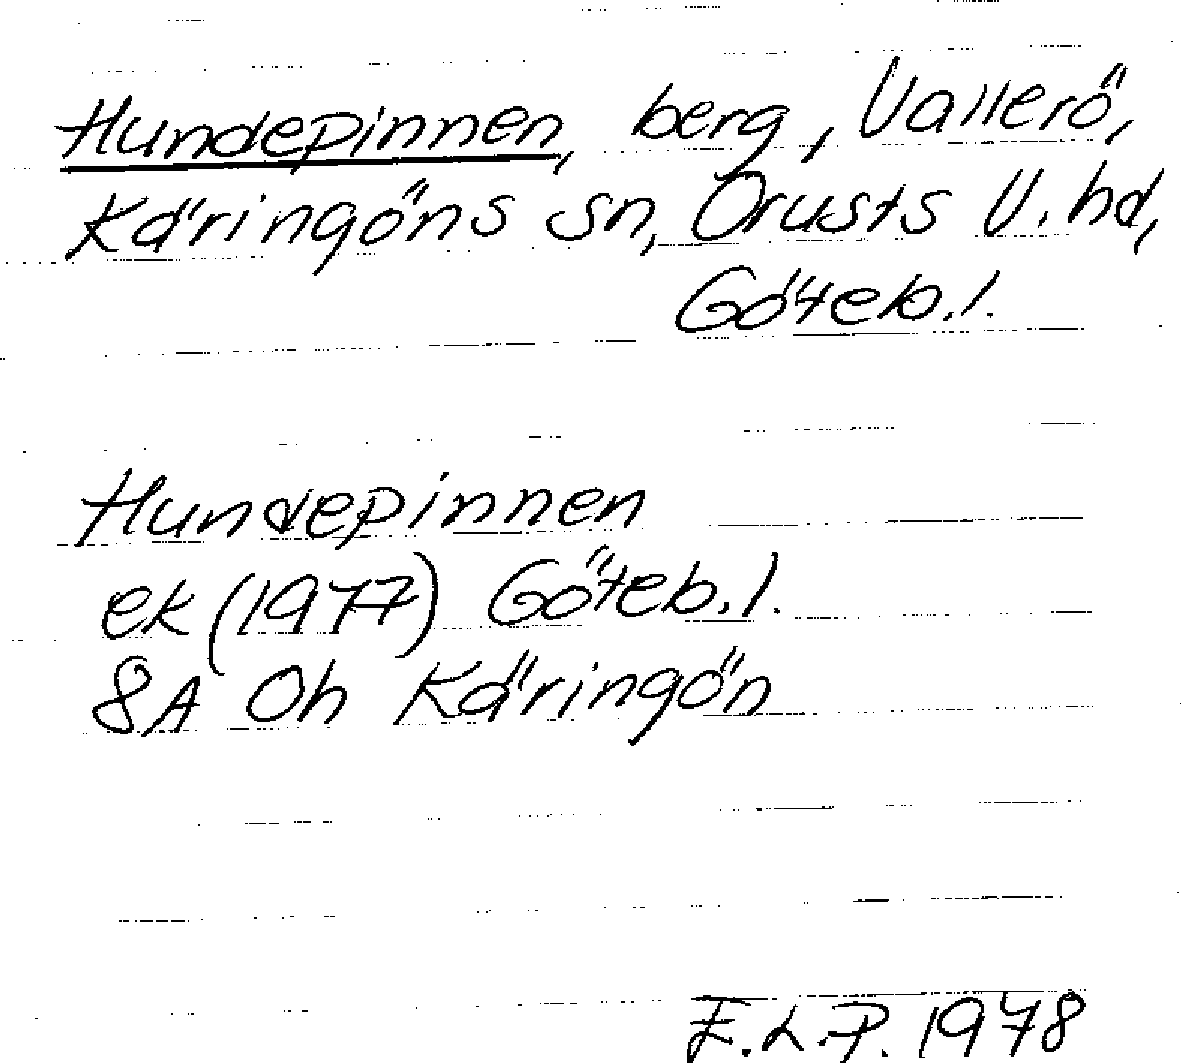 Hundepinnen, berg, Vallerö,
Käringöns sn, Orusts V. hd,
Göteb.l.
Hundepinnen
ek (1977) Göteb.l.
8A Oh Käringön
E.L.P. 1978